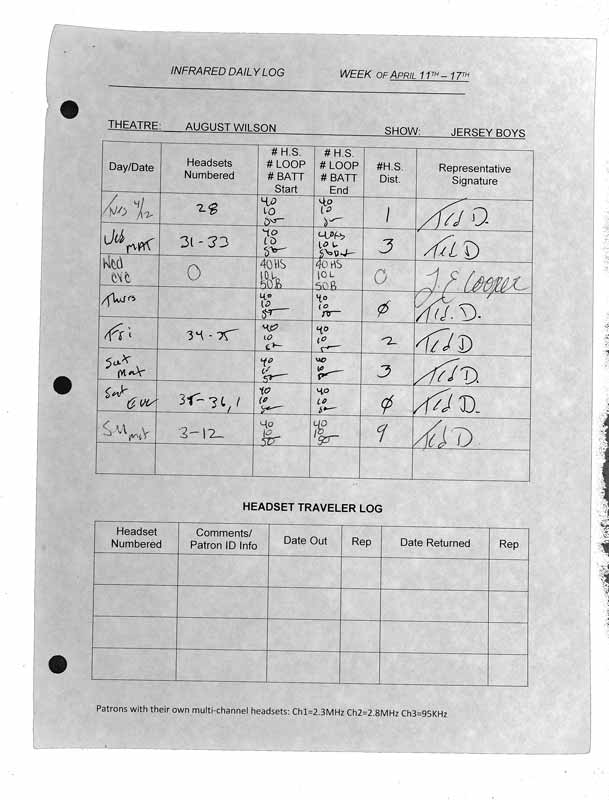 INFRARED DAILY LOG WEEK OF APRIL 11TH – 17TH
THEATRE: AUGUST WILSON SHOW: JERSEY BOYS
Day/Date
Headsets
Numbered
# H.S.
# LOOP
# BATT
Start
# H.S.
# LOOP
# BATT
End
#H.S.
Dist.
Representative
Signature
4/12 28
40
10
50
40
10
50
1 Ted D.
Wed
MAT
31-33
40
10
50
40HS
10L
3 Ted D
Wed
eve
0
40HS
10L
50B
40HS
10L
50B
0 J. E Cooper
Thurs
40
10
50
40
10
50
Ø Ted. D.
Fri
40
10
50
40
10
50
2 Ted D
Sat
Mat
40
50
50
3 Ted D.
Sat
Eve
35-36,1
40
10
50
40
10
50
Ø Ted D.
Sun
mat
3-12
40
10
50
40
10
50
9 Ted D
HEADSET TRAVELER LOG
Headset
Numbered
Comments/
Patron ID Info
Date Out
Rep
Date Returned
Rep
Patrons with their own multi-channel headsets: Ch1=2.3MHz Ch2=2.8MHz Ch3=95KHz